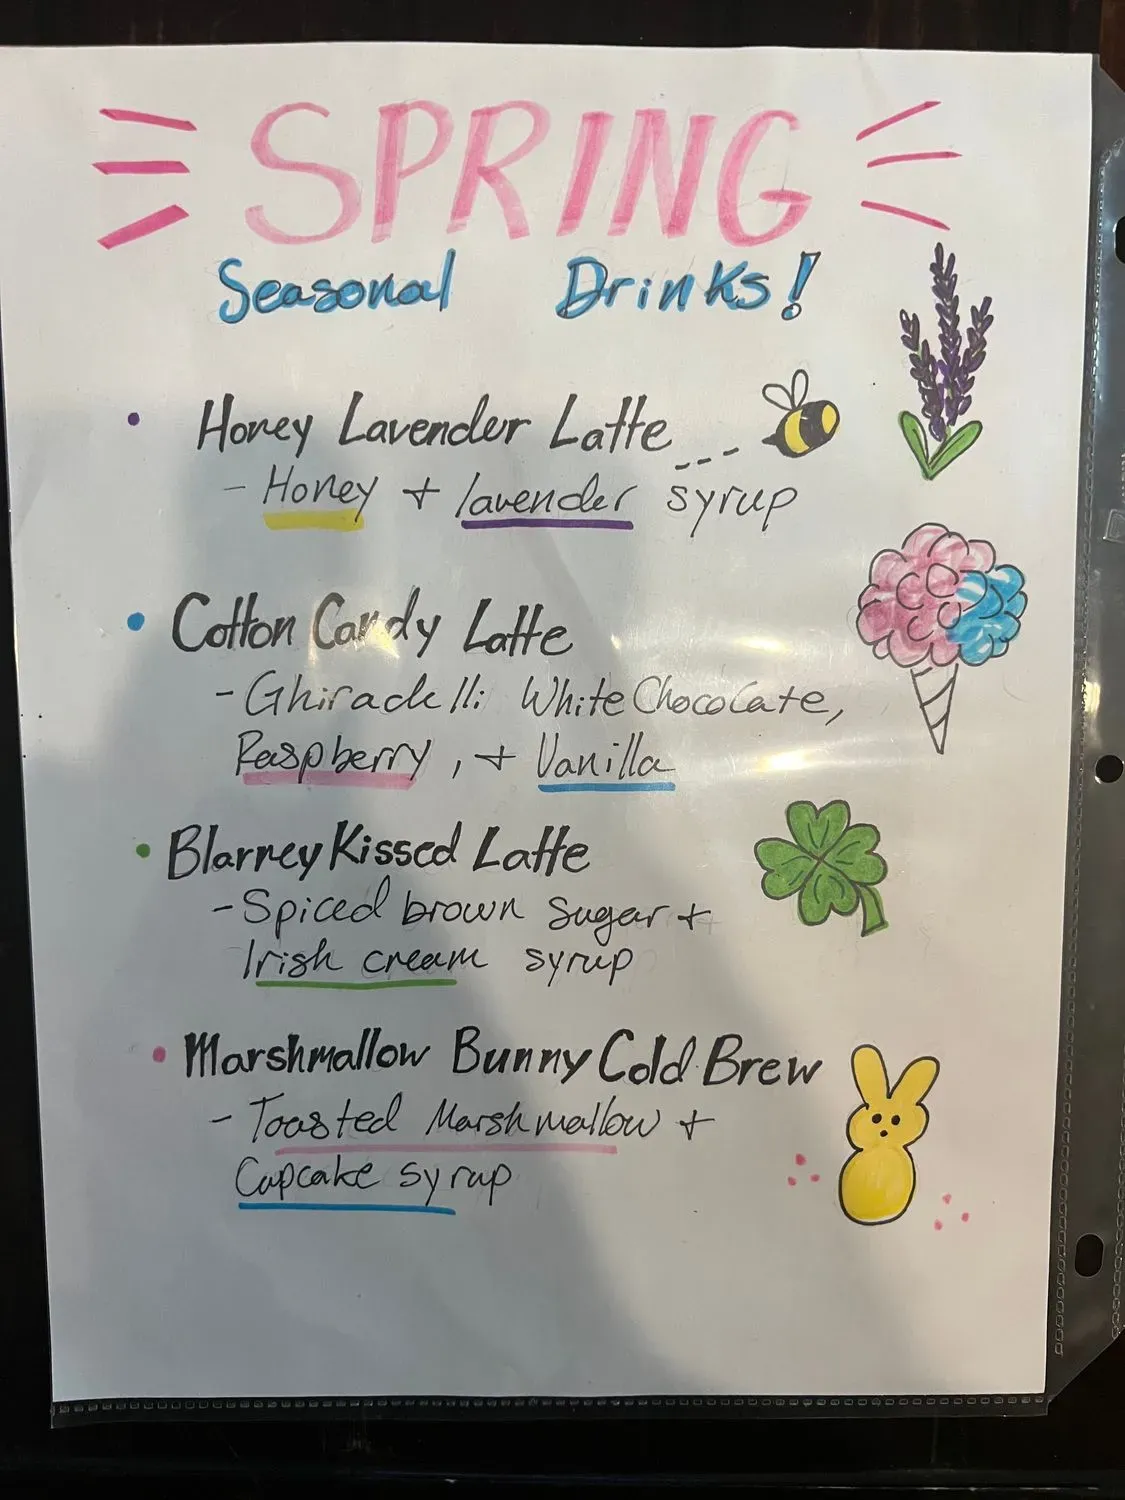 SPRING
Seasonal Drinks!
• Honey Lavender Latte
- Honey + lavender syrup
• Cotton Candy Latte
- Ghiradelli White Chocolate,
Raspberry, + Vanilla
• Blarney Kissed Latte
- Spiced brown sugar +
Irish cream syrup
• Marshmallow Bunny Cold Brew
- Toasted Marshmallow +
Cupcake syrup